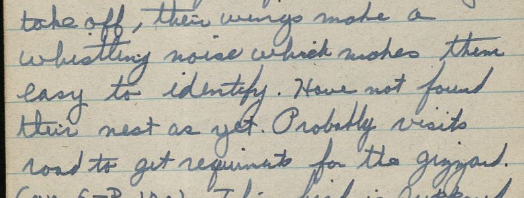 take off, their wings make a
whistling noise which makes them
easy to identify. Have not found
their nest as yet. Probably visits
road to get requirments for the gizzard.
This bird is